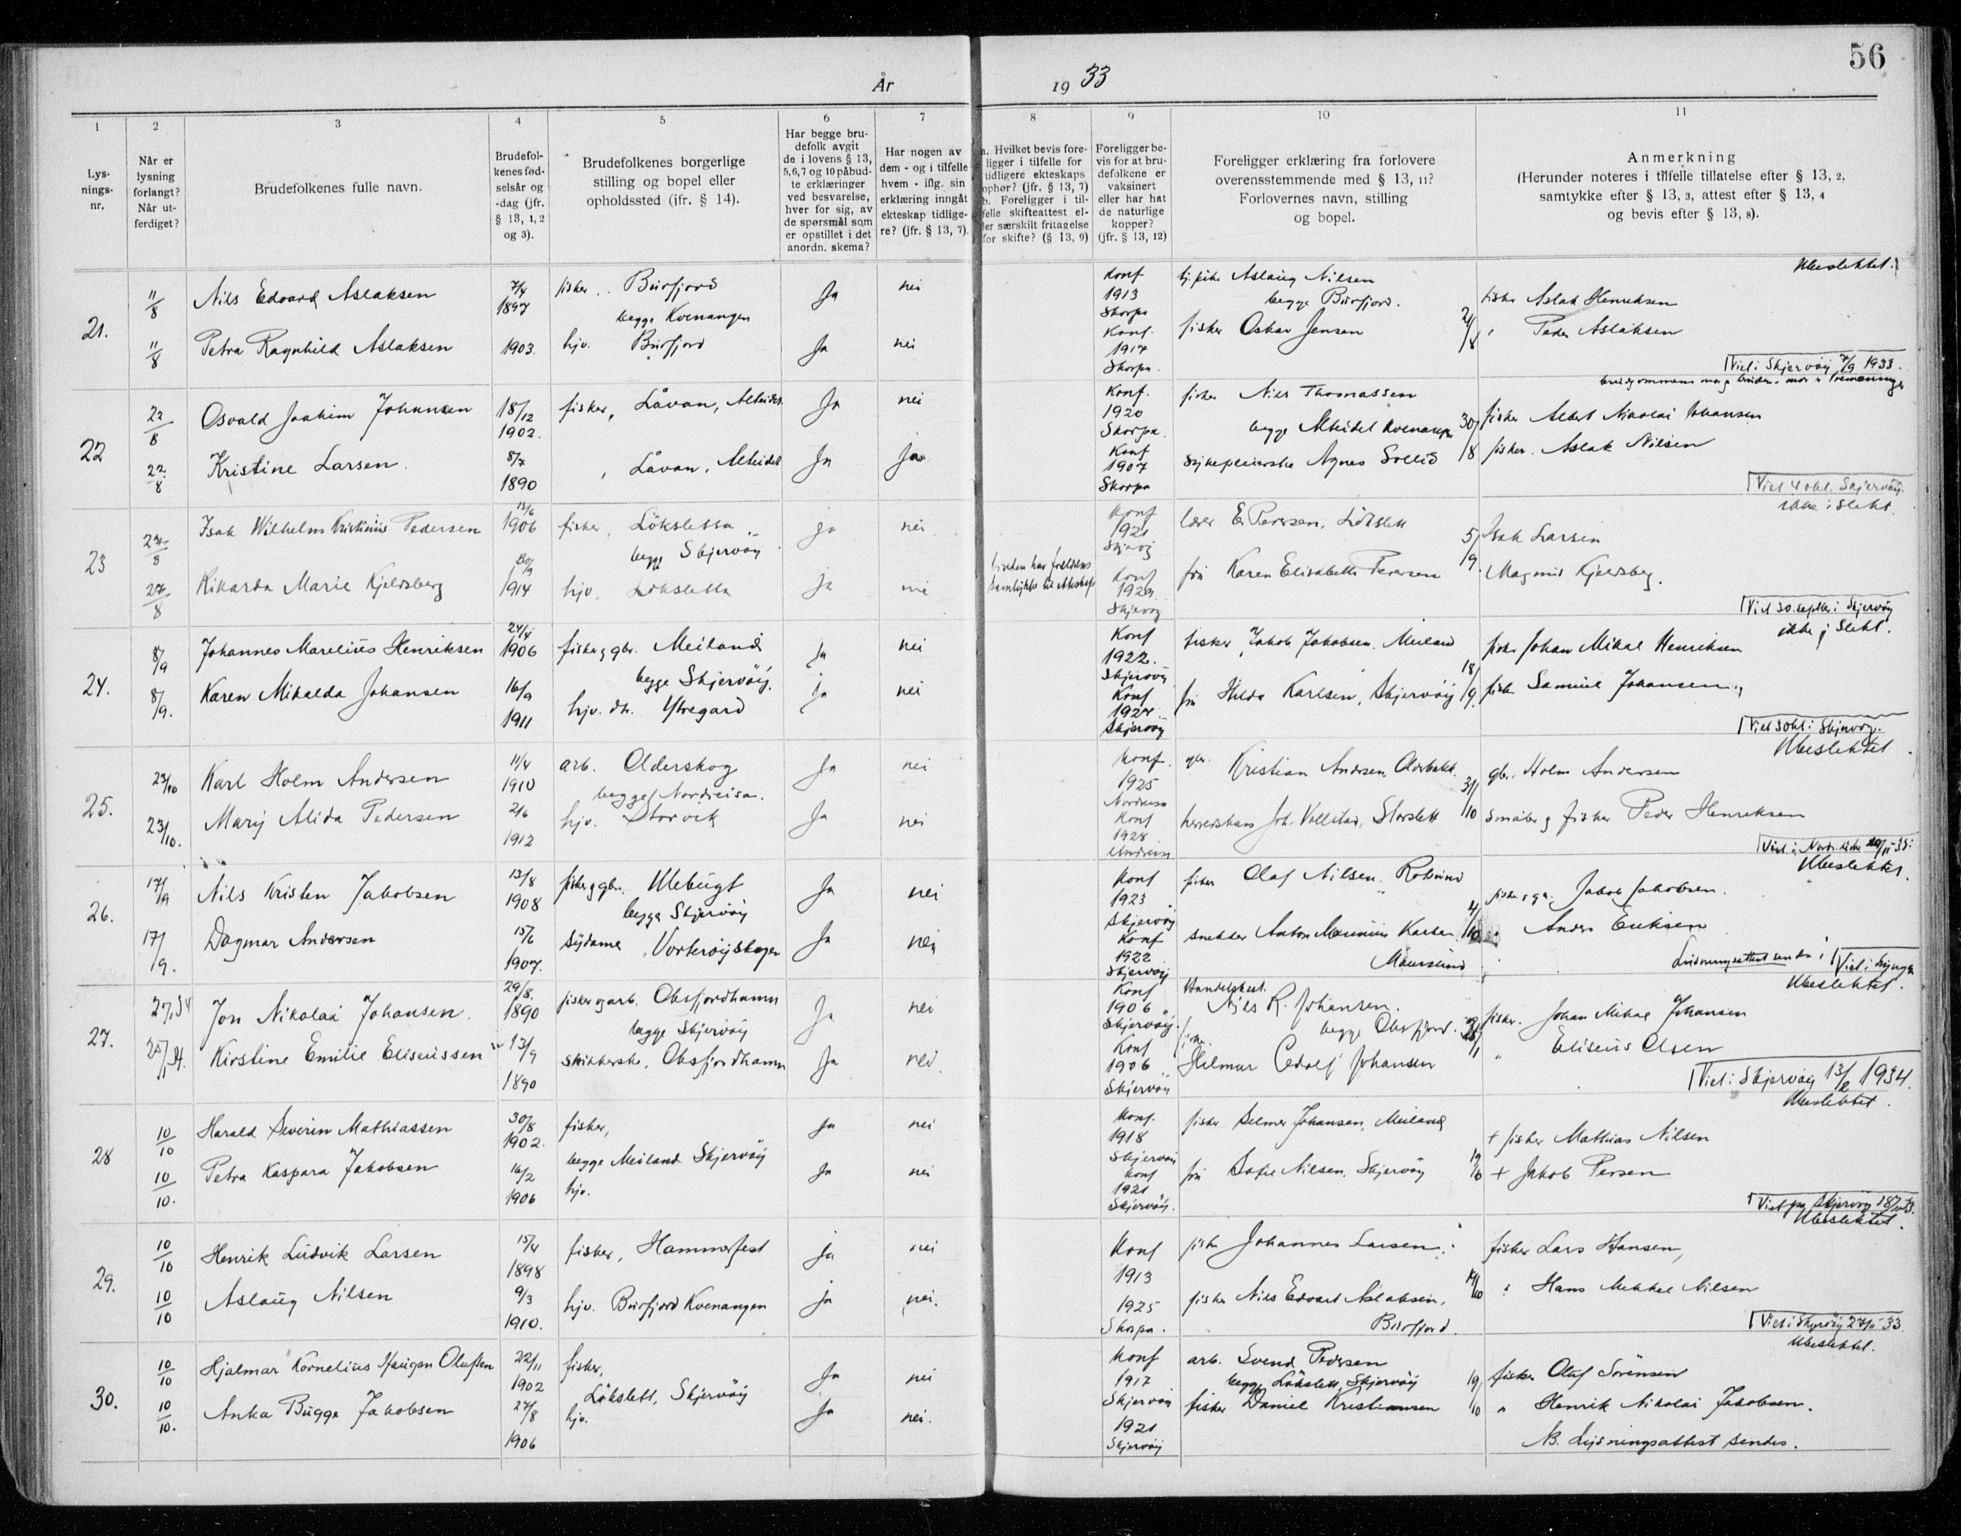 56
År 1933
1 2 3 4 5 6 7 8 9 10 11
Lys-
nings-
nr.
Når er
lysning
forlangt?
Når ut-
ferdiget?
Brudefolkenes fulle navn.
Brudefol-
kenes fød-
selsår og
-dag (jfr.
§ 13, 1, 2
og 3).
Brudefolkenes borgerlige
stilling og bopel eller
opholdssted (jfr. § 14).
Har begge bru-
defolk avgit
de i lovens § 13,
5,6,7 og 10 påbud-
te erklæringer
ved besvarelse,
hver for sig, av
de spørsmål som
er opstillet i det
anordn. skema?
Har nogen av
dem - og i tilfelle
hvem - iflg. sin
erklæring inngåt
ekteskap tidlige-
re? (jfr. § 13, 7).
a. Hvilket bevis fore-
ligger i tilfelle for
tidligere ekteskaps
ophør? (jfr. § 13, 7)
b. Foreligger i til-
felle skifteattest el-
ler særskilt fritagelse
for skifte? (§ 13, 9)
Foreligger be-
vis for at bru-
defolkene er
vaksinert
eller har hat
de naturlige
kopper?
(jfr. § 13, 12)
Foreligger erklæring fra forlovere
overensstemmende med § 13, 11?
Forlovernes navn, stilling
og bopel.
Anmerkning
(Herunder noteres i tilfelle tillatelse efter § 13, 2,
samtykke efter § 13, 3, attest efter § 13, 4
og bevis efter § 13, 8).
21. 11/8 Nils Edvard Aslaksen 7/4 1897 fisker Burfjord Ja nei Konf 1913 Skorpa Aslaug Nilsen fisker Aslak Henriksen Ubeslektet
begge Kvenangen begge Burfjord.
11/8 Petra Ragnhild Aslaksen 1903. hjv. Burfjord Ja nei Konf. 1917 Skorpa. fisker Oskar Jensen Peder Aslaksen
Viet i Skjervøy 7/9 1933.
22 22/8 Osvald Joakim Johansen 18/12 1902. fisker, Låvan, Alteidet Ja nei Konf. 1920 Skorpa. fisker Nils Thomassen 30/8 fisker Albert Nikolai Johansen
begge Alteidet Kvenangen
22/8 Kristine Larsen. 8/7 1890 Låvan, Alteidet Ja Ja Konf 1907 Skorpa sykepleierske Agnes Sollid fisker. Aslak Nilsen
Viet 4 okt. Skjervøy.
ikke i slekt.
23 27/8 Isak Wilhelm Kristinius Pedersen 1906 fisker, Löksletta ja nei Konf 1921 Skjervøy lærer E. Petersen, Lökslett 5/9 Isak Larsen
begge Skjervöy
27/8 Rikarda Marie Kjeldsberg 30/9 1914 hjv. Löksletta ja nei Konf 1929 Skjervøy fru Karen Elisabeth Petersen Magnus Kjeldsberg.
Viet 30. septbr. i Skjervøy
ikke i slekt.
24. 8/9 Johannes Marelius Henriksen 24/4 1906 fisker g gbr. Meiland Ja nei Konf 1922. Skjervøy fisker Jakob Jakobsen Meiland 18/9 fisker Johan Mikal Henriksen
begge Skjervöy.
8/9. Karen Mikalda Johansen 16/9 1911 hjv. dtr. Ytregard Ja nei Konf 1927 Skjervöy fru Hilda Karlsen, Skjervöy fisker Samuel Johansen
Viet 3 okt i Skjervøy.
Ubeslektet
25. 23/10 Karl Holm Andersen 11/4 1910 arb. Olderskog Ja nei Konf. 1925 Nordreisa gbr. Kristian Andersen, Olderbakk 31/10 gbr. Holm Andersen
begge Nordreisa.
23/10. Mary Alida Pedersen 2/6 1912 hjv. Storvik Ja nei Konf 1928 Nordreisa Joh. Vollstad, Storslett småbr g fisker Peder Henriksen
Ubeslektet.
26. 17/9 Nils Kristen Jakobsen 13/8 1908 fisker g gbr. Uløbugt Ja nei Konf 1923 Skjervøy fisker Olaf Nilsen, Rotsund 4/10 Jakob Jakobsen.
begge Skjervöy
17/9. Dagmar Andersen 15/6 1907. sydame, Vorterøyskagen Ja nei Konf 1922 Skjervøy snekker Anton Karlsen Anders Eriksen
Maursund Lysningsattest sendes
Viet i
Ubeslektet.
27. Jon Nikolai Johansen. 29/8. 1890 fisker og arb. Oksfjordhamn Ja nei Konf 1906 Skjervøy. Handelsbest. Nils R. Johansen. fisker. Johan Mikal Johansen
begge Skjervöy begge Oksfjord.
Kirstine Emilie Eliseussen 13/9 1890 Oksfjordhamn Ja nei. Konf 1906 Skjervöy Hilmar Edolf Johansen Eliseus Olsen
Viet i Skjervøy 13/2 1934.
Ubeslektet.
28 10/10 Harald Severin Mathiassen 30/8 1902. fisker, Ja nei Konf. 1918 Skjervøy fisker Selmer Johansen, Meiland + fisker Mathias Nilsen
begge Meiland Skjervöy
10/10. Petra Kaspara Jakobsen 16/2 1906 hjv. Ja nei Konf 1921 Skjervøy. fru Sofie Nilsen, Skjervöy 19/10 + Jakob Persen
Ubeslektet.
29. 10/10 Henrik Ludvik Larsen 15/4 1898 fisker, Hammerfest ja nei Konf 1913 fisker Johannes Larsen fisker Lars Hansen,
10/10 Aslaug Nilsen 9/3 1910. hjv. Burfjord Kvenangen ja nei. 1925 Skorpa. fisker Nils Edvart Aslaksen, 19/10 Hans Mikkel Nilsen
Burfjord.
Ubeslektet.
30. 10/10 Hjalmar Kornelius Haugan Olufsen 22/11 1902 fisker, Ja nei Konf 1917 Skjervøy arb. Svend Pedersen 19/10 fisker Oluf Sörensen
Lökslett, Skjervöy begge Lökslett, Skjervöy
10/10. Anka Bugge Jakobsen 27/8 1906 hjv. Ja nei. 1921 Skjervöy fisker Daniel Kristiansen " Henrik Nikolai Jakobsen.
NB. Lysningsattest sendes.